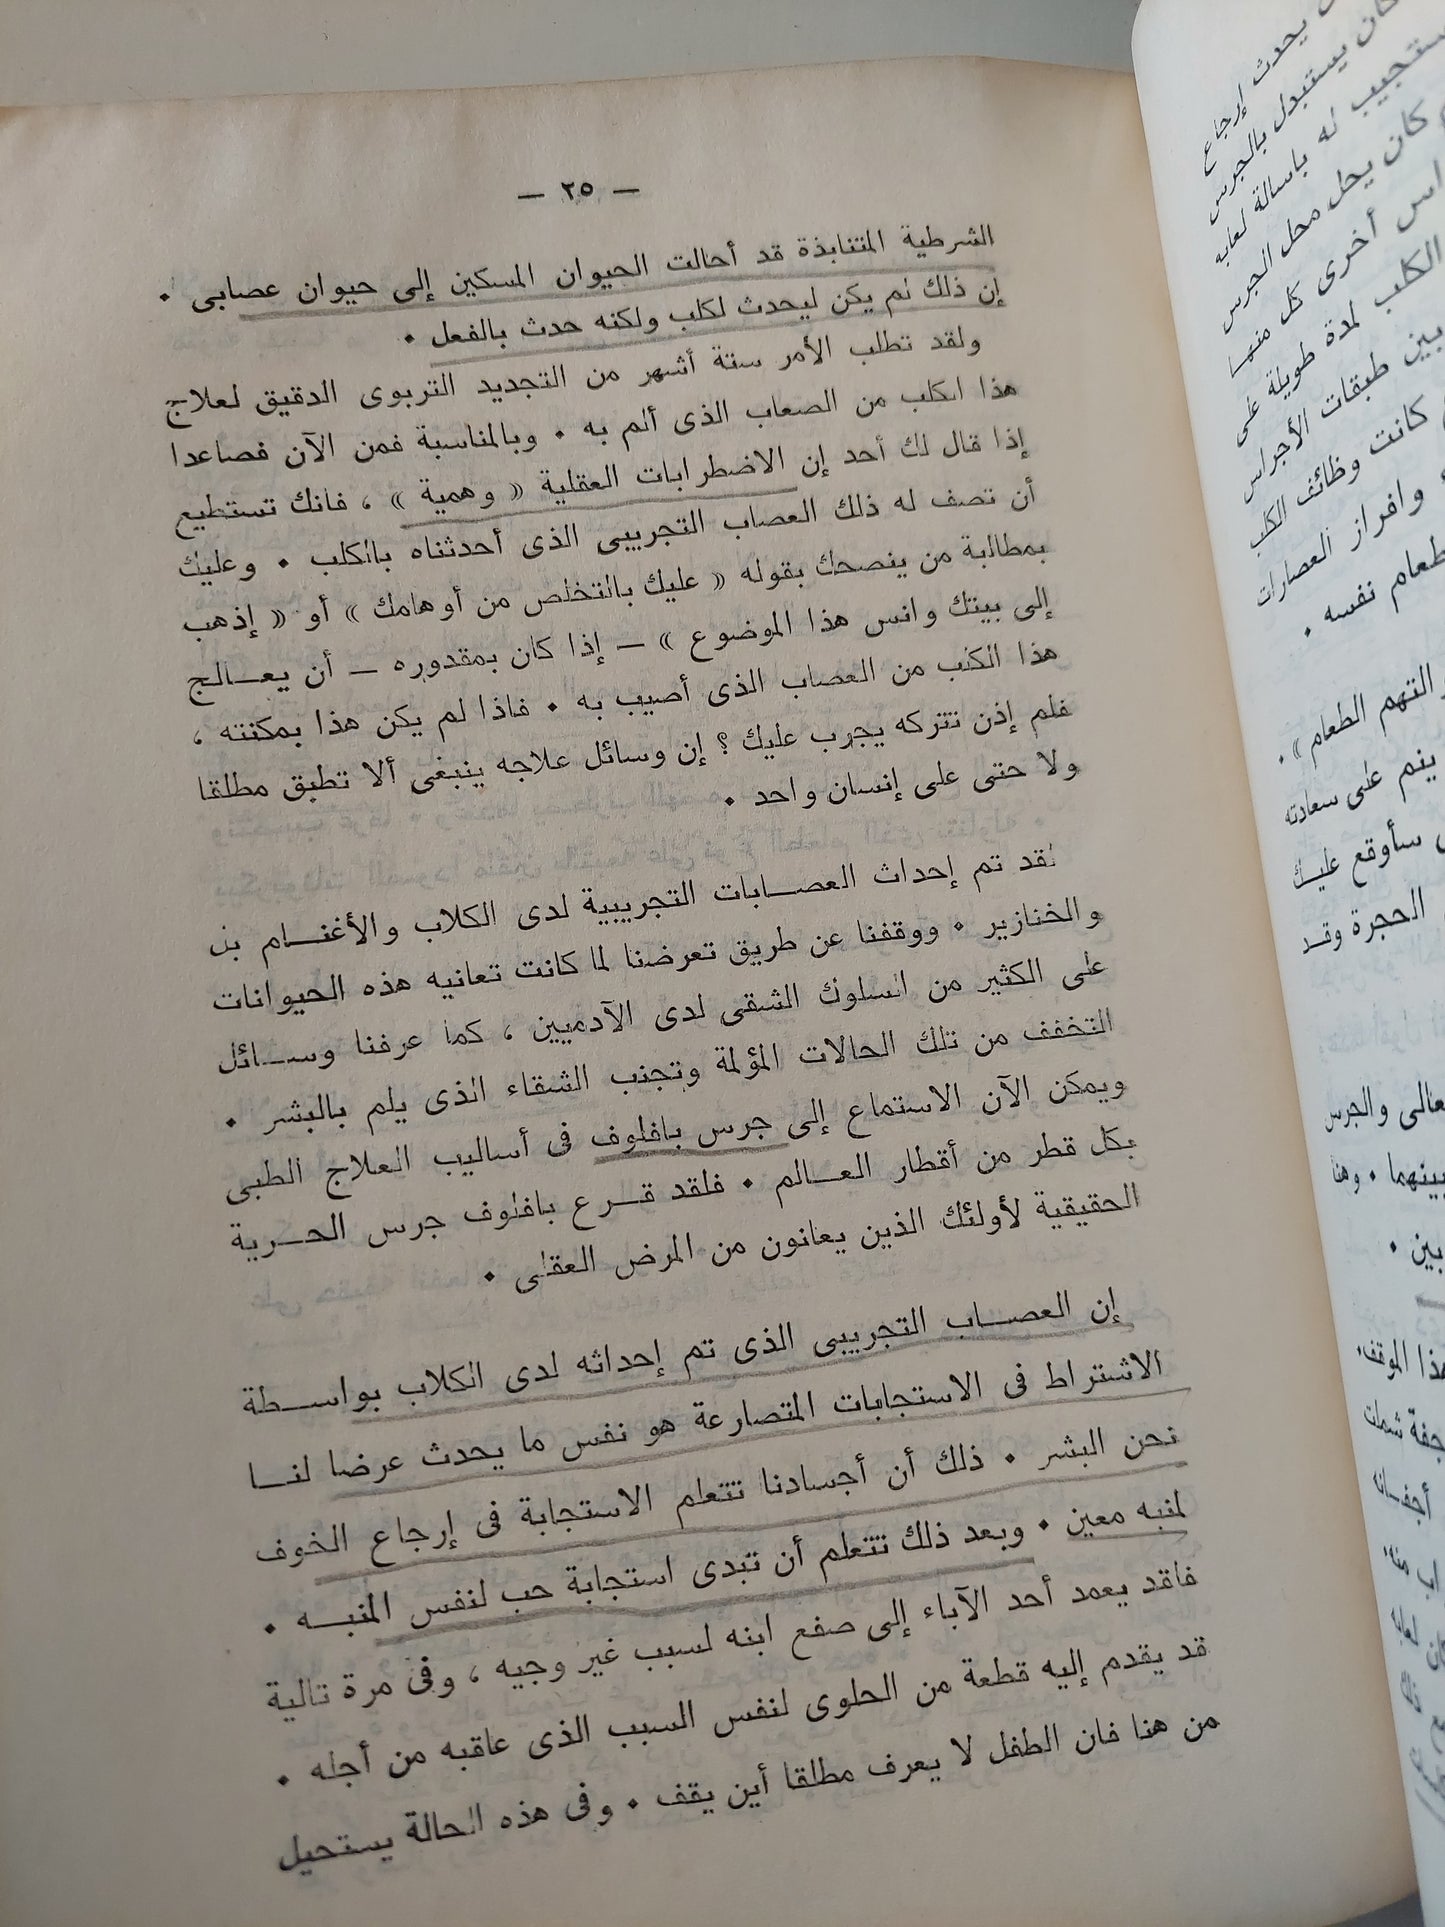 — ٢٥ —
الشرطية المتنابذة قد أحالت الحيوان المسكين إلى حيوان عصابى .
إن ذلك لم يكن ليحدث لكلب ولكنه حدث بالفعل .
ولقد تطلب الأمر ستة أشهر من التجديد التربوى الدقيق لعلاج
هذا الكلب من الصعاب الذى ألم به . وبالمناسبة فمن الآن فصاعدا
إذا قال لك أحد إن الاضطرابات العقلية « وهمية » ، فانك تستطيع
أن تصف له ذلك العصاب التجريبى الذى أحدثناه بالكلب . وعليك
بمطالبة من ينصحك بقوله « عليك بالتخلص من أوهامك » أو « إذهب
إلى بيتك وانس هذا الموضوع » — إذا كان بمقدوره — أن يعــالج
هذا الكلب من العصاب الذى أصيب به . فاذا لم يكن هذا بمكنته ،
فلم إذن تتركه يجرب عليك ؟ إن وسائل علاجه ينبغى ألا تطبق مطلقا
ولا حتى على إنسان واحد .
لقد تم إحداث العصــابات التجريبية لدى الكلاب والأغنــام بل
والخنازير . ووقفنا عن طريق تعرضنا لما كانت تعانيه هذه الحيوانات
على الكثير من السلوك الشقى لدى الآدميين ، كما عرفنا وســائل
التخفف من تلك الحالات المؤلمة وتجنب الشقاء الذى يلم بالبشر .
ويمكن الآن الاستماع إلى جرس بافلوف فى أساليب العلاج الطبى
بكل قطر من أقطار العــالم . فلقد قــرع بافلوف جرس الحــرية
الحقيقية لأولئك الذين يعانون من المرض العقلى .
إن العصــاب التجريبى الذى تم إحداثه لدى الكلاب بواســطة
الاشتراط فى الاستجابات المتصارعة هو نفس ما يحدث عرضا لنــا
نحن البشر . ذلك أن أجسادنا تتعلم الاستجابة فى إرجاع الخوف
لمنبه معين . وبعد ذلك تتعلم أن تبدى استجابة حب لنفس المنبــه .
فاقد يعمد أحد الآباء إلى صفع ابنه لسبب غير وجيه ، وفى مرة تالية
قد يقدم إليه قطعة من الحلوى لنفس السبب الذى عاقبه من أجله .
من هنا فان الطفل لا يعرف مطلقا أين يقف . وفى هذه الحالة يستحيل
يحدث إرجاع
كان يستبدل بالجرس
له باسالة لعابه
كان يحل محل الجرس
أخرى كل منها
الكلب لمدة طويلة على
بين طبقات الأجراس
كانت وظائف الكلب
وافراز العصارات
نفسه .
التهم الطعام » .
ينم على سعادته
سأوقع عليك
الحجرة وقد
والجرس
بينهما . وهنا
بين .
الموقف .
شملت
منه .
لعابه